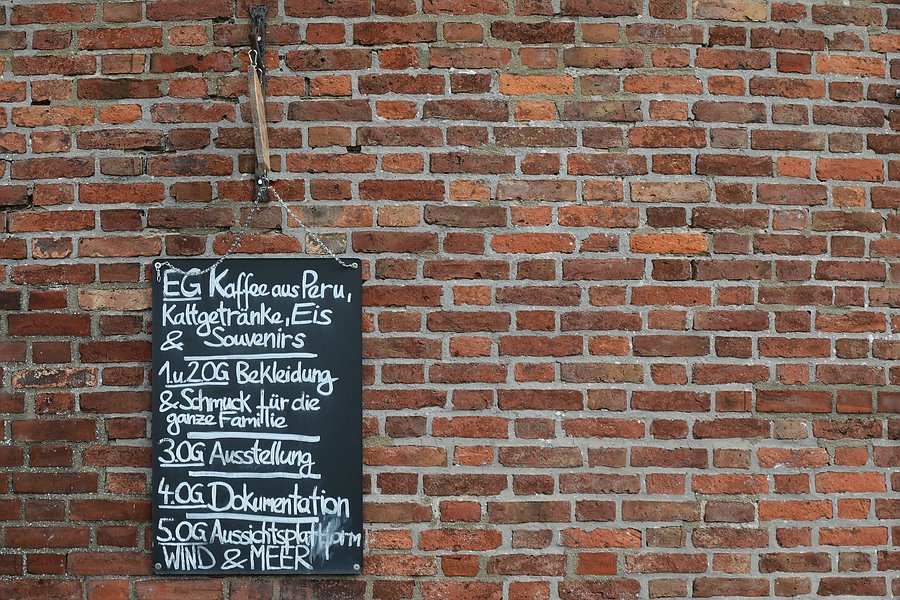 EG Kaffee aus Peru,
Kaltgetränke, Eis
& Souvenirs
1.u.2.OG Bekleidung
& Schmuck für die
ganze Familie
3.OG Ausstellung
4.OG Dokumentation
5.OG Aussichtsplattform
WIND & MEER